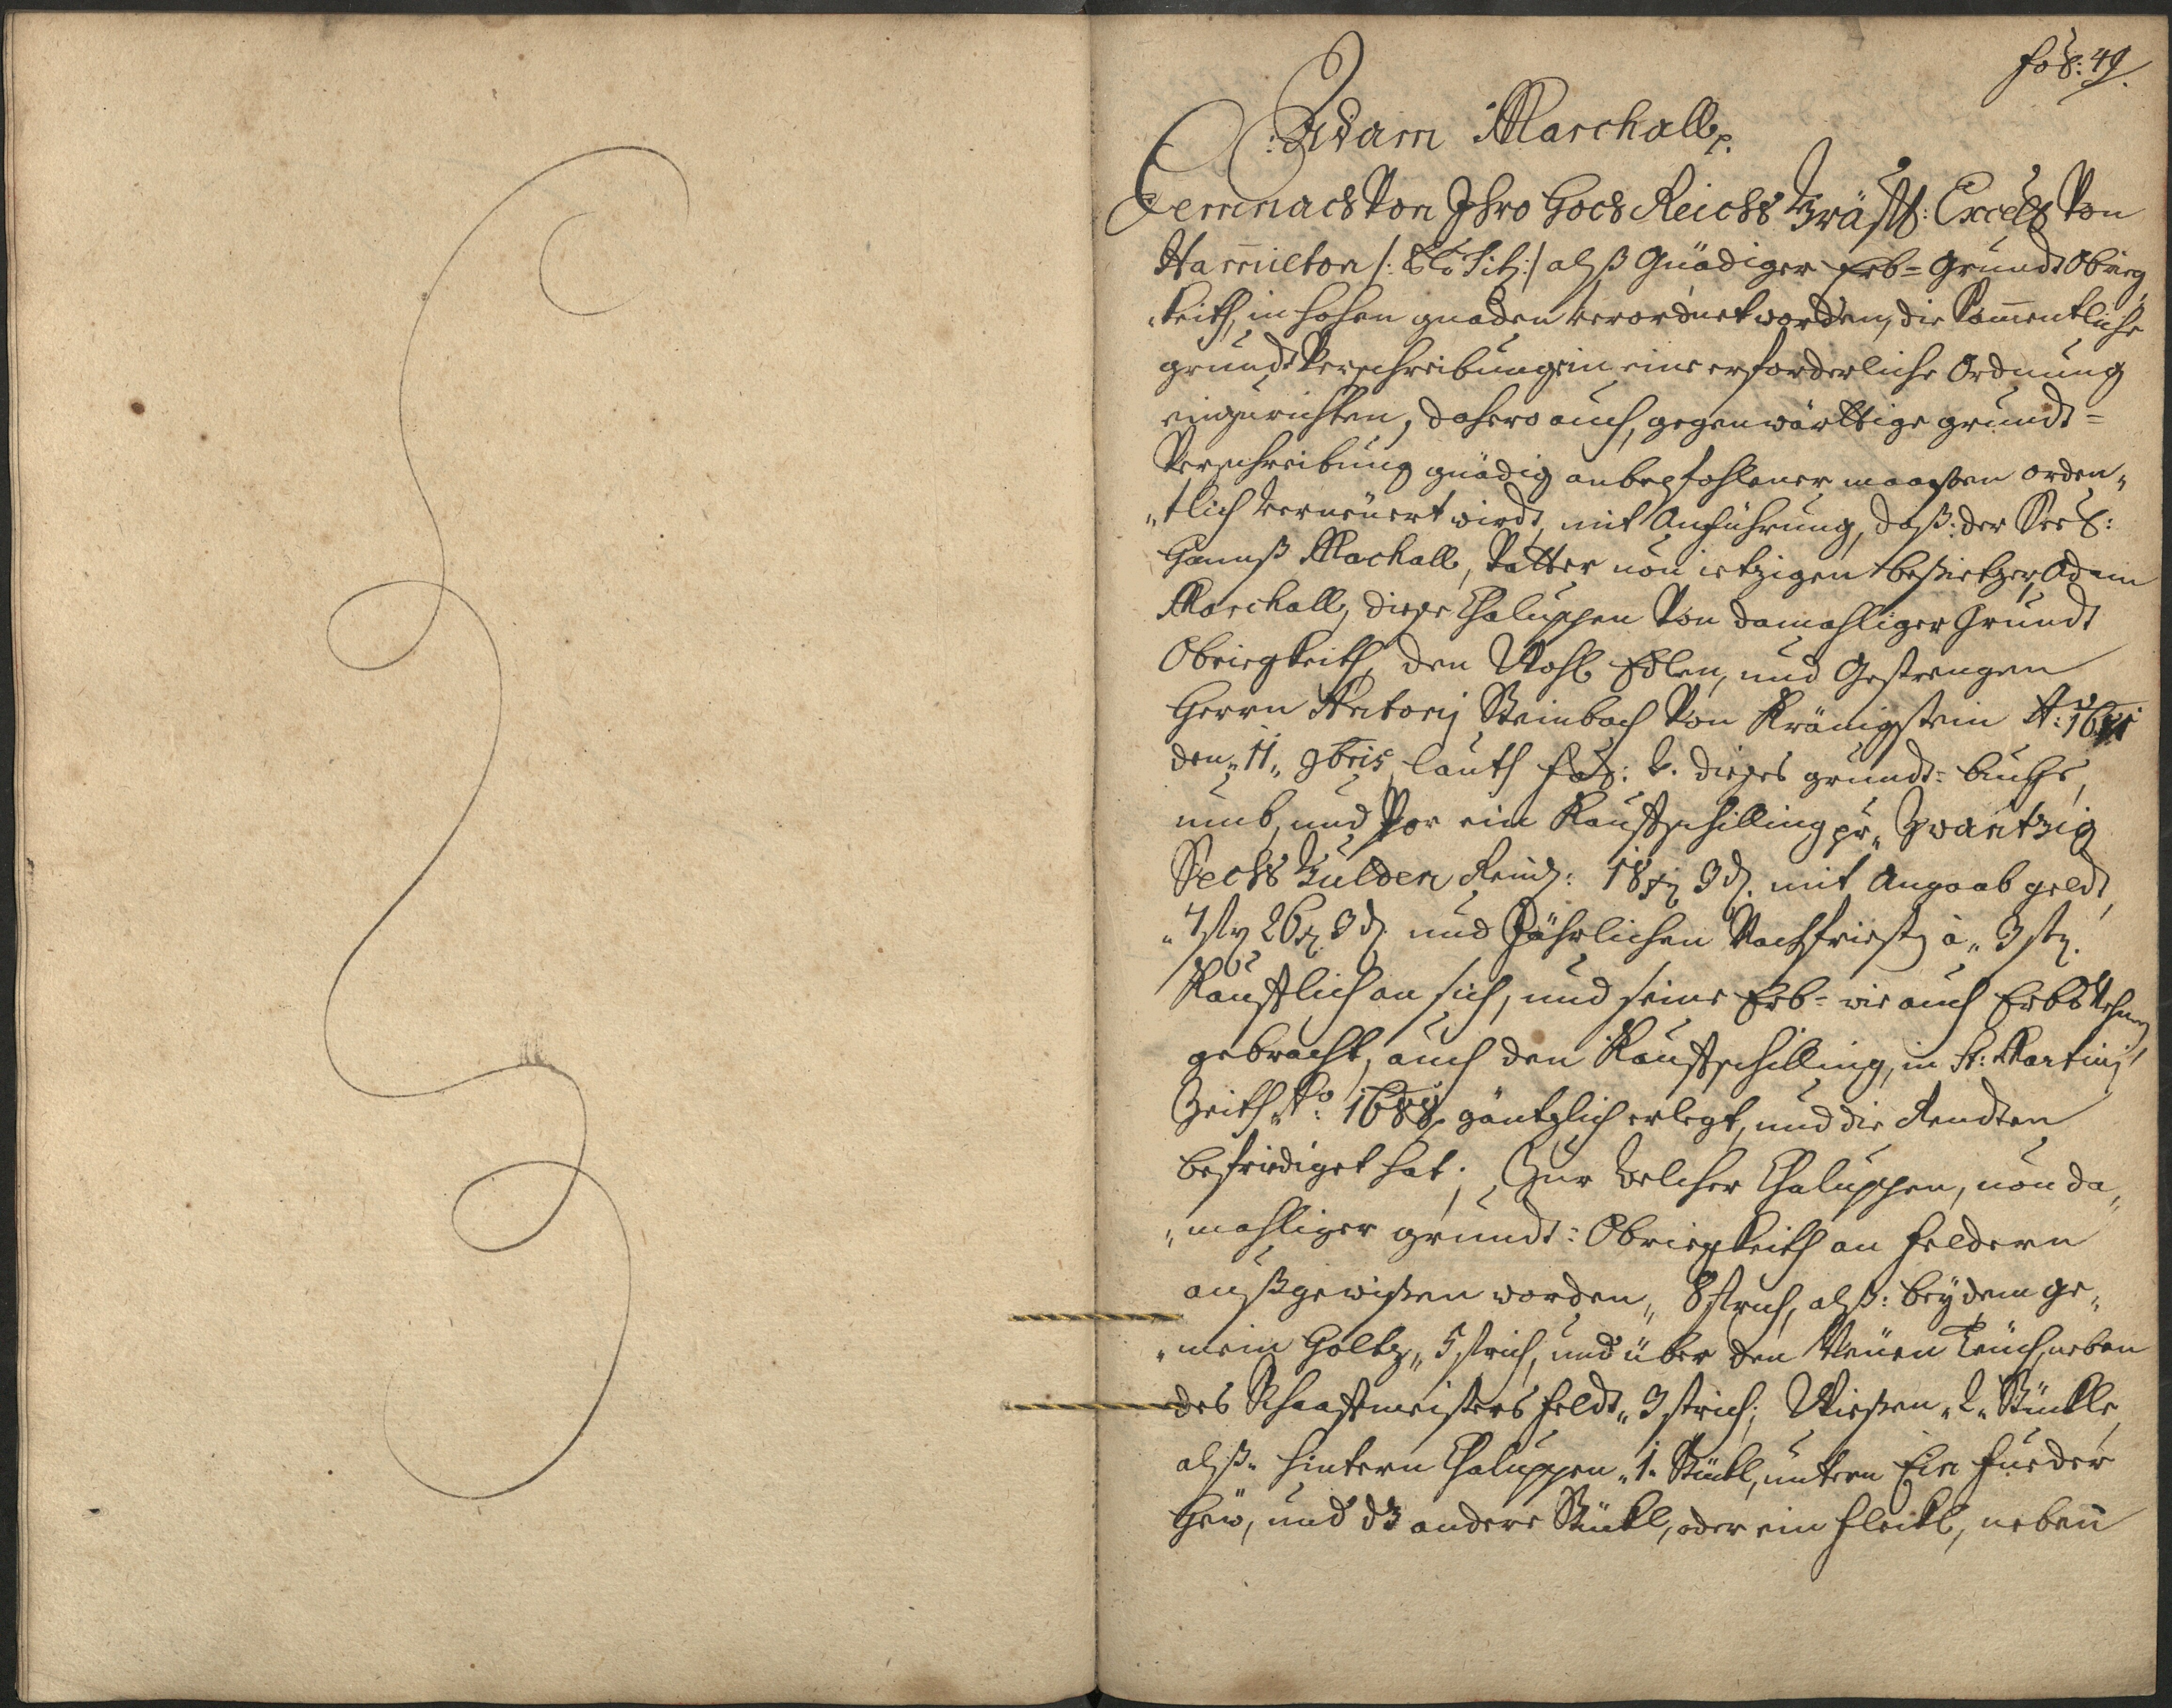 fol: 49.
Adam Marchall p.
Demnach Von Ihro Hoch Reichs Gräffl: Excell Von
Hamilton /: Tit: / alß Gnädiger Erb= Grundt Obrig„
„keith, in hohen gnaden verordnet worden, die Samentliche
grundt Verschreibung in eine erforderliche Ordnung
einzurichten, dahero auch, gegenwärttige grundt=
Verschreibung gnädig anbefohlener maaßen orden„
„tlich verneüert wirdt, mit Anführung, daß: der Seel:
Hannß Machall, Vatter non ietzigen besietzer Adam
Marchall, diese Chaluppen Von damahliger Grundt
Obriegkeith, den Wohl Edlen, und Gestrengen
Herrn Antonj Steinbach Von Kränigstein Aō:
den„ 11„ 9bris, lauth fol: 2. dieses grundt= buchs,
umb, und Vor ein Kauffschilling pr„ Zwantzig
Sechs Gulden Reinl: 18 xr 3 d. mit Angaab geldt,
„7 fl 26 xr 3 d. und Jährlichen Nachfriest à„ 3 fl.
Kaufflich an sich, und seine Erb= wie auch Erbs Nehmer
gebracht, auch den Kauffschilling, in St: Martinj
Zeith Aō: 1688 gäntzlich erlegt, und die Rendten
befriediget hat; Zur welcher Chaluppen, von da„
„mahliger grundt= Obriegkeith an Feldern
außgewißen worden„ 8 strich, alß: beÿ dem ge„
„mein Holtz„ 5 strich, und über den Neüen Teüch, neben
des Schaaffmeisters feldt„ 3 strich; Wießen„ 2„ Stückle,
alß„ hintern Chaluppen„ 1„ Stückl, untern Ein fueder
Heü, und dz andere Stückl, oder ein fleckl, neben